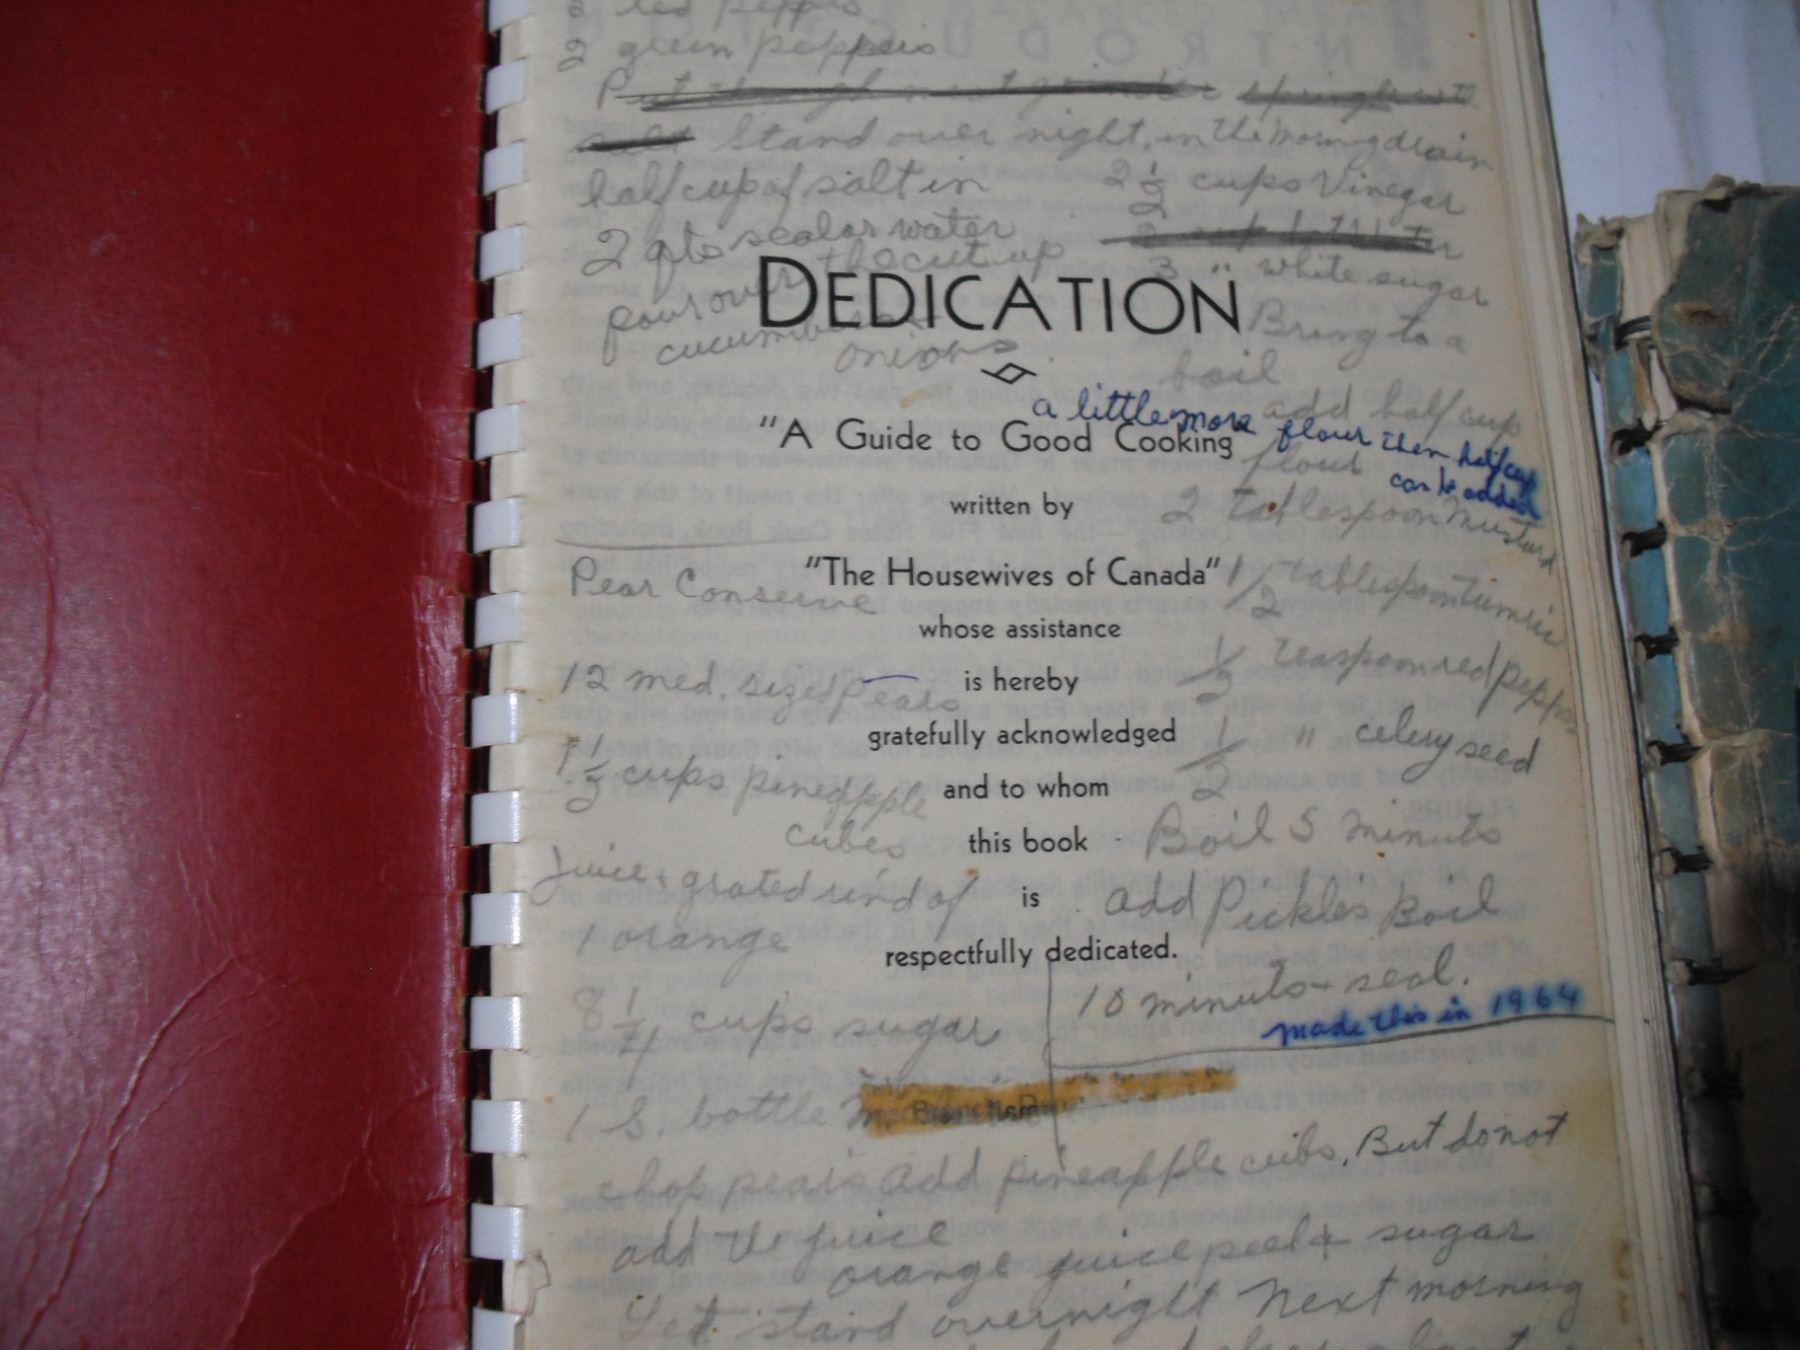 2 red peppers
2 green peppers
Put through meat grinder sprinkle with
salt Stand over night, in the morning drain
half cup of salt in
2 qts sealar water
pour over the cut up
cucumbers +
onions
2 1/2 cups Vinegar
3 " white sugar
Bring to a
boil
add half cup
flour
a little more flour then half cup
can be added
2 tablespoon Mustard
1/2 tablespoon tumric
1/2 teaspoon red pepper
1/2 " celery seed
Boil 5 minuts
add Pickles Boil
10 minuts + seal.
made this in 1964
DEDICATION
"A Guide to Good Cooking
written by
"The Housewives of Canada"
whose assistance
is hereby
gratefully acknowledged
and to whom
this book
is
respectfully dedicated.
Pear Conserve
12 med. sized pears
1 1/2 cups pineapple
cubes
Juice + grated rind of
1 orange
8 1/4 cups sugar
1 S. bottle
chop pears add pineapple cubs. But do not
add the juice
orange juice peel + sugar
Let stand overnight Next morning